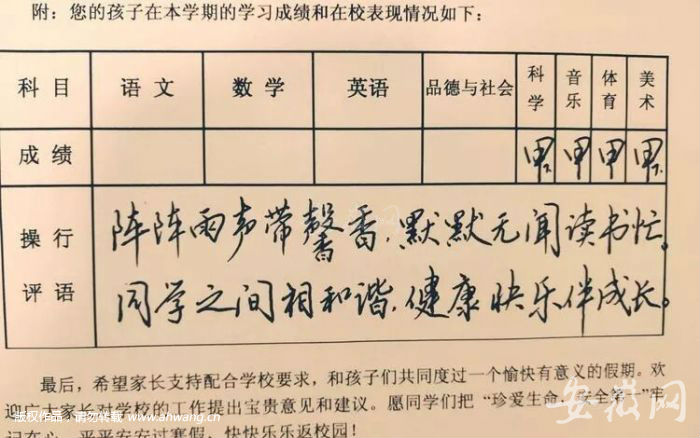 附：您的孩子在本学期的学习成绩和在校表现情况如下：
科目 语文 数学 英语 品德与社会 科学 音乐 体育 美术
成绩 甲 甲 甲 甲
操行评语
阵阵雨声带馨香，默默无闻读书忙。
同学之间相和谐，健康快乐伴成长。
最后，希望家长支持配合学校要求，和孩子们共同度过一个愉快有意义的假期。欢
迎广大家长对学校的工作提出宝贵意见和建议。愿同学们把“珍爱生命，安全第一”牢
记在心，平平安安过寒假，快快乐乐返校园！
版权作品，请勿转载 www.ahwang.cn
安徽网